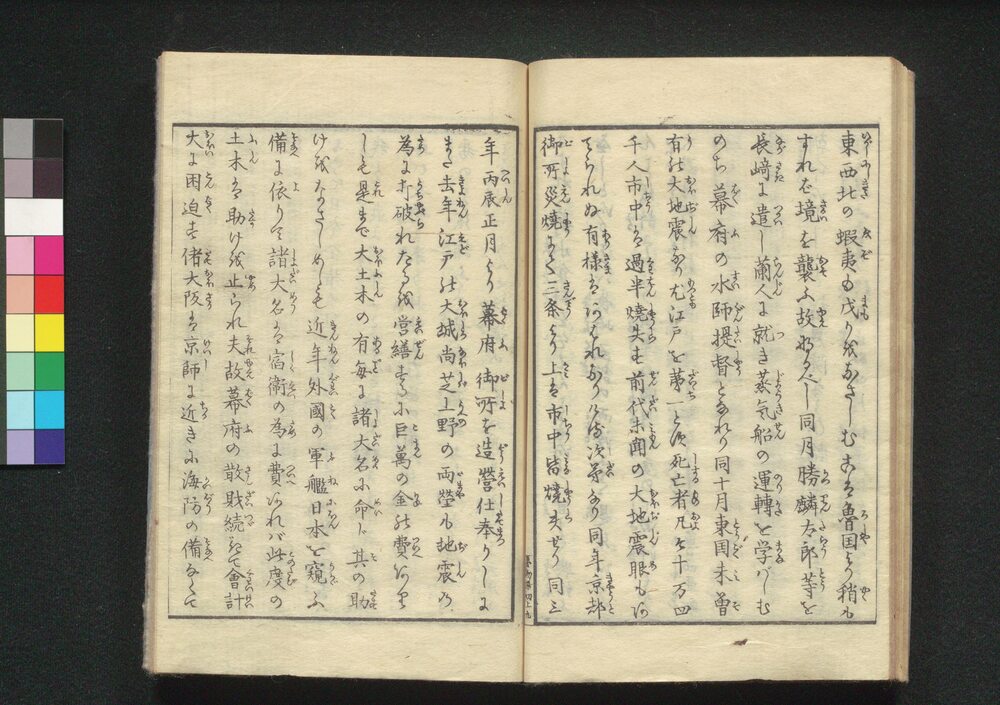 東西北の蝦夷も戍りを為さしむこは魯国より稍も
すれば境を襲ふ故なるべし同月勝麟太郎等を
長﨑に遣し蘭人に就き蒸気船の運轉を学ばしむ
のち幕府の水師提督となれり同十月東国未曽
有の大地震あり尤江戸を第一とす死亡者凡そ十万四
千人市中は過半焼失す前代未聞の大地震眼も
てられぬ有様はあはれなりける次第なり同年京都
御所災焼にて三条より上は市中皆焼失せり同三
年丙辰正月より幕府御所を造營仕奉りしに
また去年江戸の大城尚芝上野の両塋も地震の
為に打破れたるを営繕するに巨萬の金の費あり
しも是まで大土木の有毎に諸大名に命じ其の助
けをなさしめしも近年外國の軍艦日本を窺ふ
備に依りて諸大名は宿衛の為に費あれば此度の
土木は助けを止られ夫故幕府の散財続きて會計
大に困迫す偖大阪は京師に近きに海防の備なくて